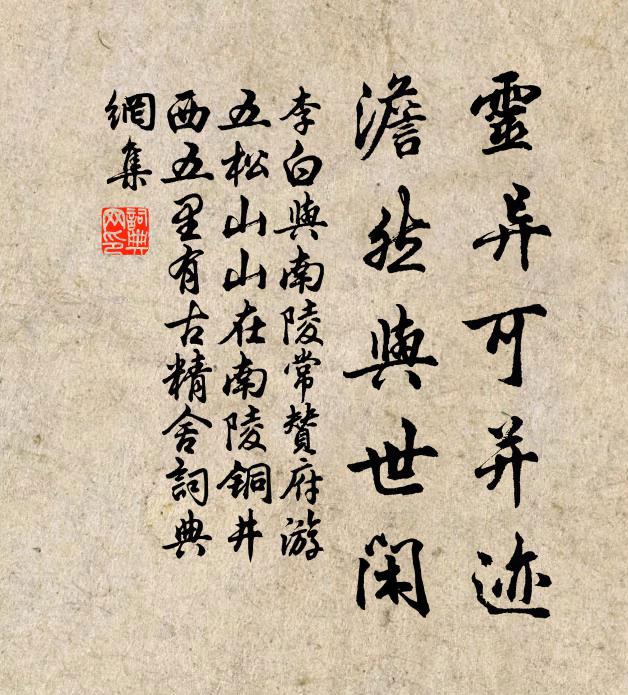 靈异可并迹
澹然與世闲
李白與南陵常贊府游
五松山山在南陵铜井
西五里有古精舍詞典
網集
詞典网印